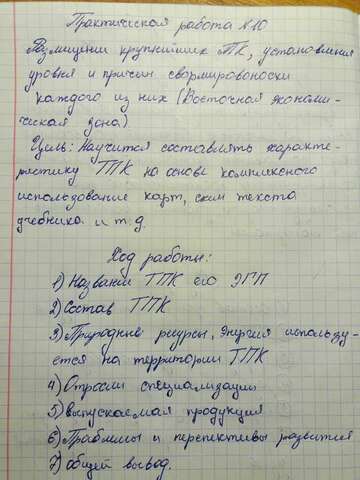 Практическая работа №10
Размищении крупнейших ТК, установления
уровня и причин сформировоноски
каждого из них (Восточная экономи-
ческая зона)
Цель: Научится составлять характе-
ристику ТПК на основе комплексного
использование карт, схем текста
учебника и т.д.
Ход работы:
1) Названии ТПК его ЭГП
2) Состав ТПК
3) Природные ресурсы, энергия использу-
ется на территории ТПК
4) Отросли специализации
5) выпускаемая продукция
6) Праблемы и перспективы развития
7) общей вывод.